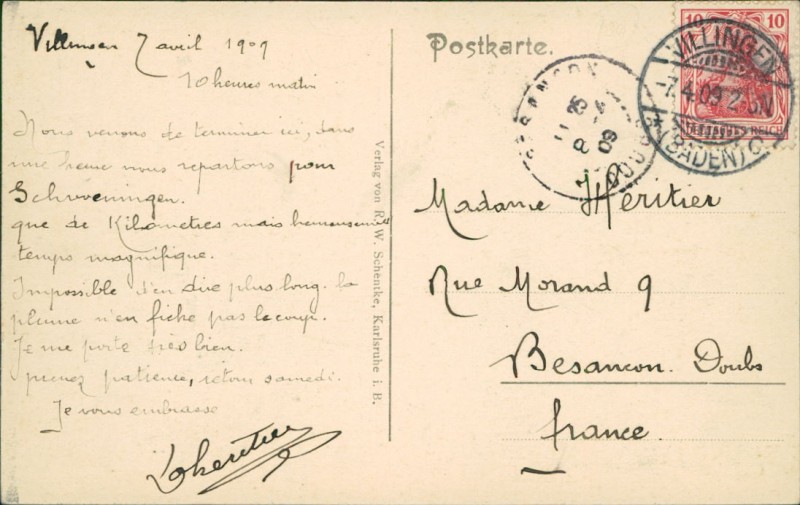 Villingen 7 avril 1909
10 heures matin
Nous venons de terminer ici, dans
une heure nous repartons pour
Schweningen.
que de Kilomètres mais heureusement
temps magnifique.
Impossible d'en dire plus long. la
plume n'en fiche pas le coup.
Je me porte très bien.
prenez patience, retour samedi.
Je vous embrasse
Lheritier
Verlag von R. W. Schentke, Karlsruhe i. B.
Postkarte.
BESANÇON
DOUBS
8 -4 09
10 10
DEUTSCHES REICH
VILLINGEN
-7.4.09.2-3N
*(BADEN)
Madame Héritier
Rue Morand 9
Besançon. Doubs
france.